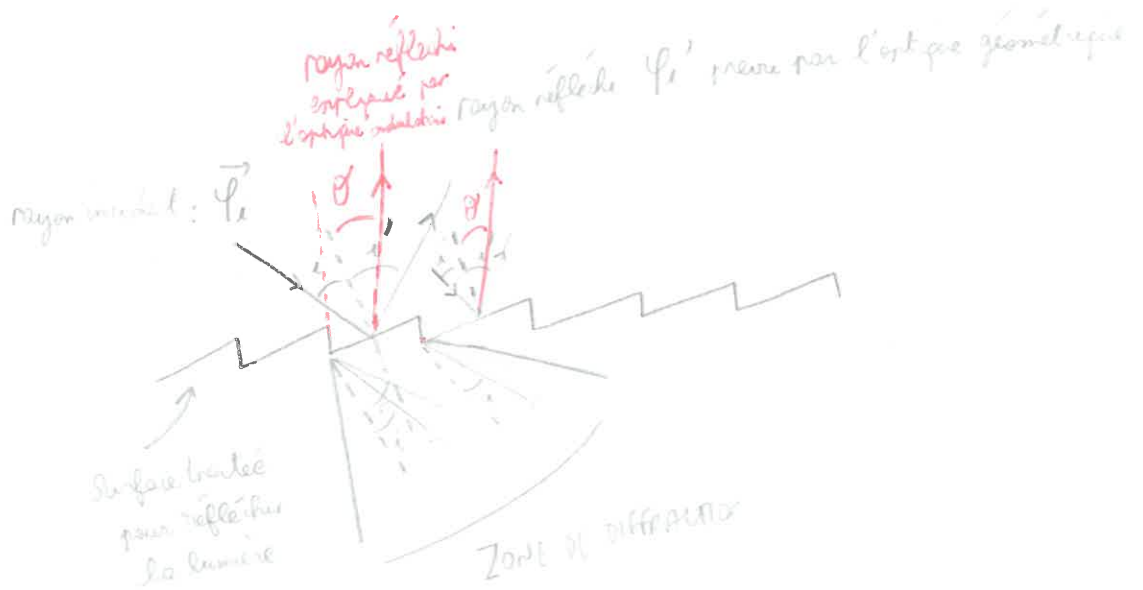 rayon réfléchi
expliqué par
l'optique ondulatoire
rayon réfléchi φi' prévu par l'optique géométrique
rayon incident : φi
θ
θ
i
i
i
i
Surface traitée
pour réfléchir
la lumière
ZONE DE DIFFRACTION